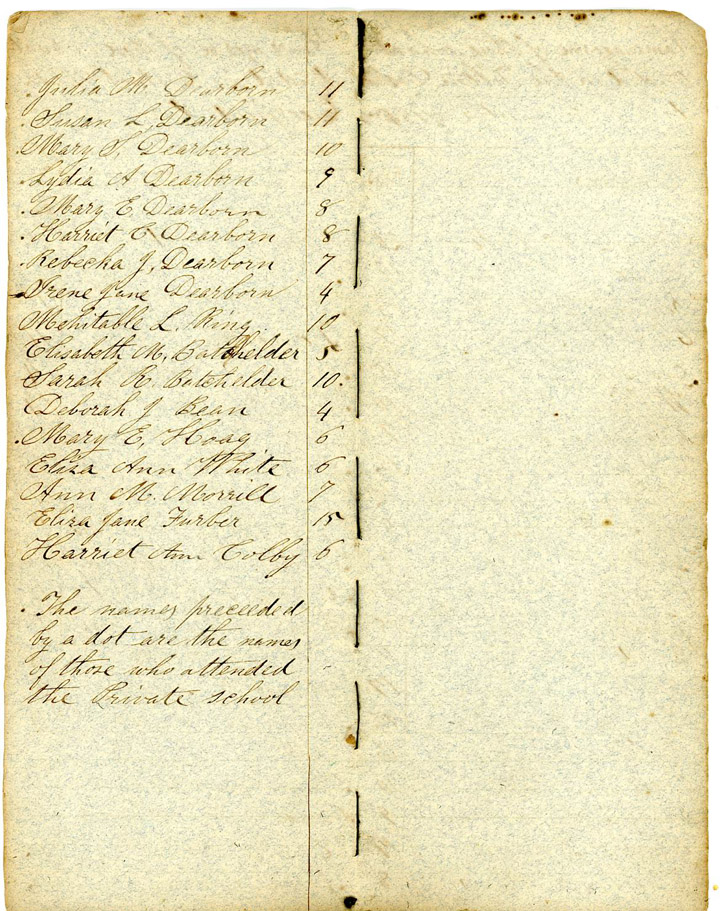 . Julia M Dearborn 11
. Susan L, Dearborn 11
. Mary S, Dearborn 10
. Lydia A Dearborn 9
. Mary E Dearborn 8
. Harriet C Dearborn 8
. Rebecka J, Dearborn 7
Irene Jane Dearborn 4
Mehitable L. Ring 10
Elisabeth M, Batchelder 5
Sarah R. Batchelder 10.
Deborah J Bean 4
. Mary E, Hoag 6
Eliza Ann White 6
Ann M. Morrill 7
Eliza Jane Furber 15
Harriet Ann Colby 6
. The names preceeded
by a dot are the names
of those who attended
the Private school